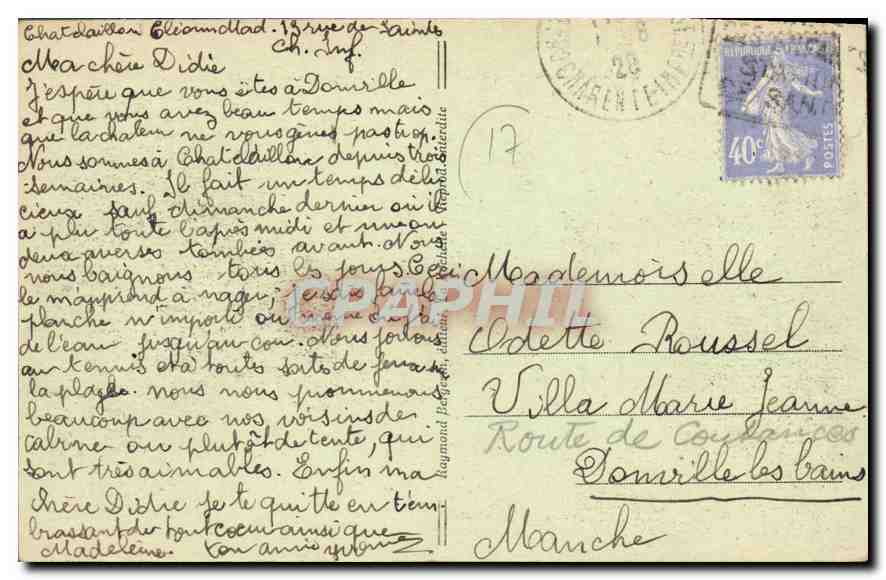 Chatelaillon Mad. 13 rue de Saintes
Ch. Inf.
Ma chère Didie
J'espère que vous êtes à Donville
et que vous avez beau temps mais
que la chaleur ne vous gênes pas trop.
Nous sommes à Chatelaillon depuis trois
semaines. Il fait un temps déli
cieux sauf dimanche dernier où il
a plu toute l'après midi et une ou
deux averses tombées avant. Nous
nous baignons tous les jours.
le m'apprend à nager; je sais faire la
planche n'importe où même où j'ai
de l'eau jusqu'au cou. Nous jouons
au tennis et à toutes sortes de jeux
la plage. nous nous promenons
beaucoup avec nos voisins de
cabine ou plutôt de tente, qui
sont très aimables. Enfin ma
chère Didie je te quitte en t'em-
brassant de tout coeur ainsi que
Madeleine. ton amie Yvonne
Raymond Bergevin, éditeur, La Rochelle - Reprod. interdite
17
CHARENTE-INFRE
28
RÉPUBLIQUE FRANÇAISE
40c
POSTES
CPAPHIL
Mademoiselle
Odette Roussel
Villa Marie Jeanne
Route de Coutances
Donville les bains
Manche